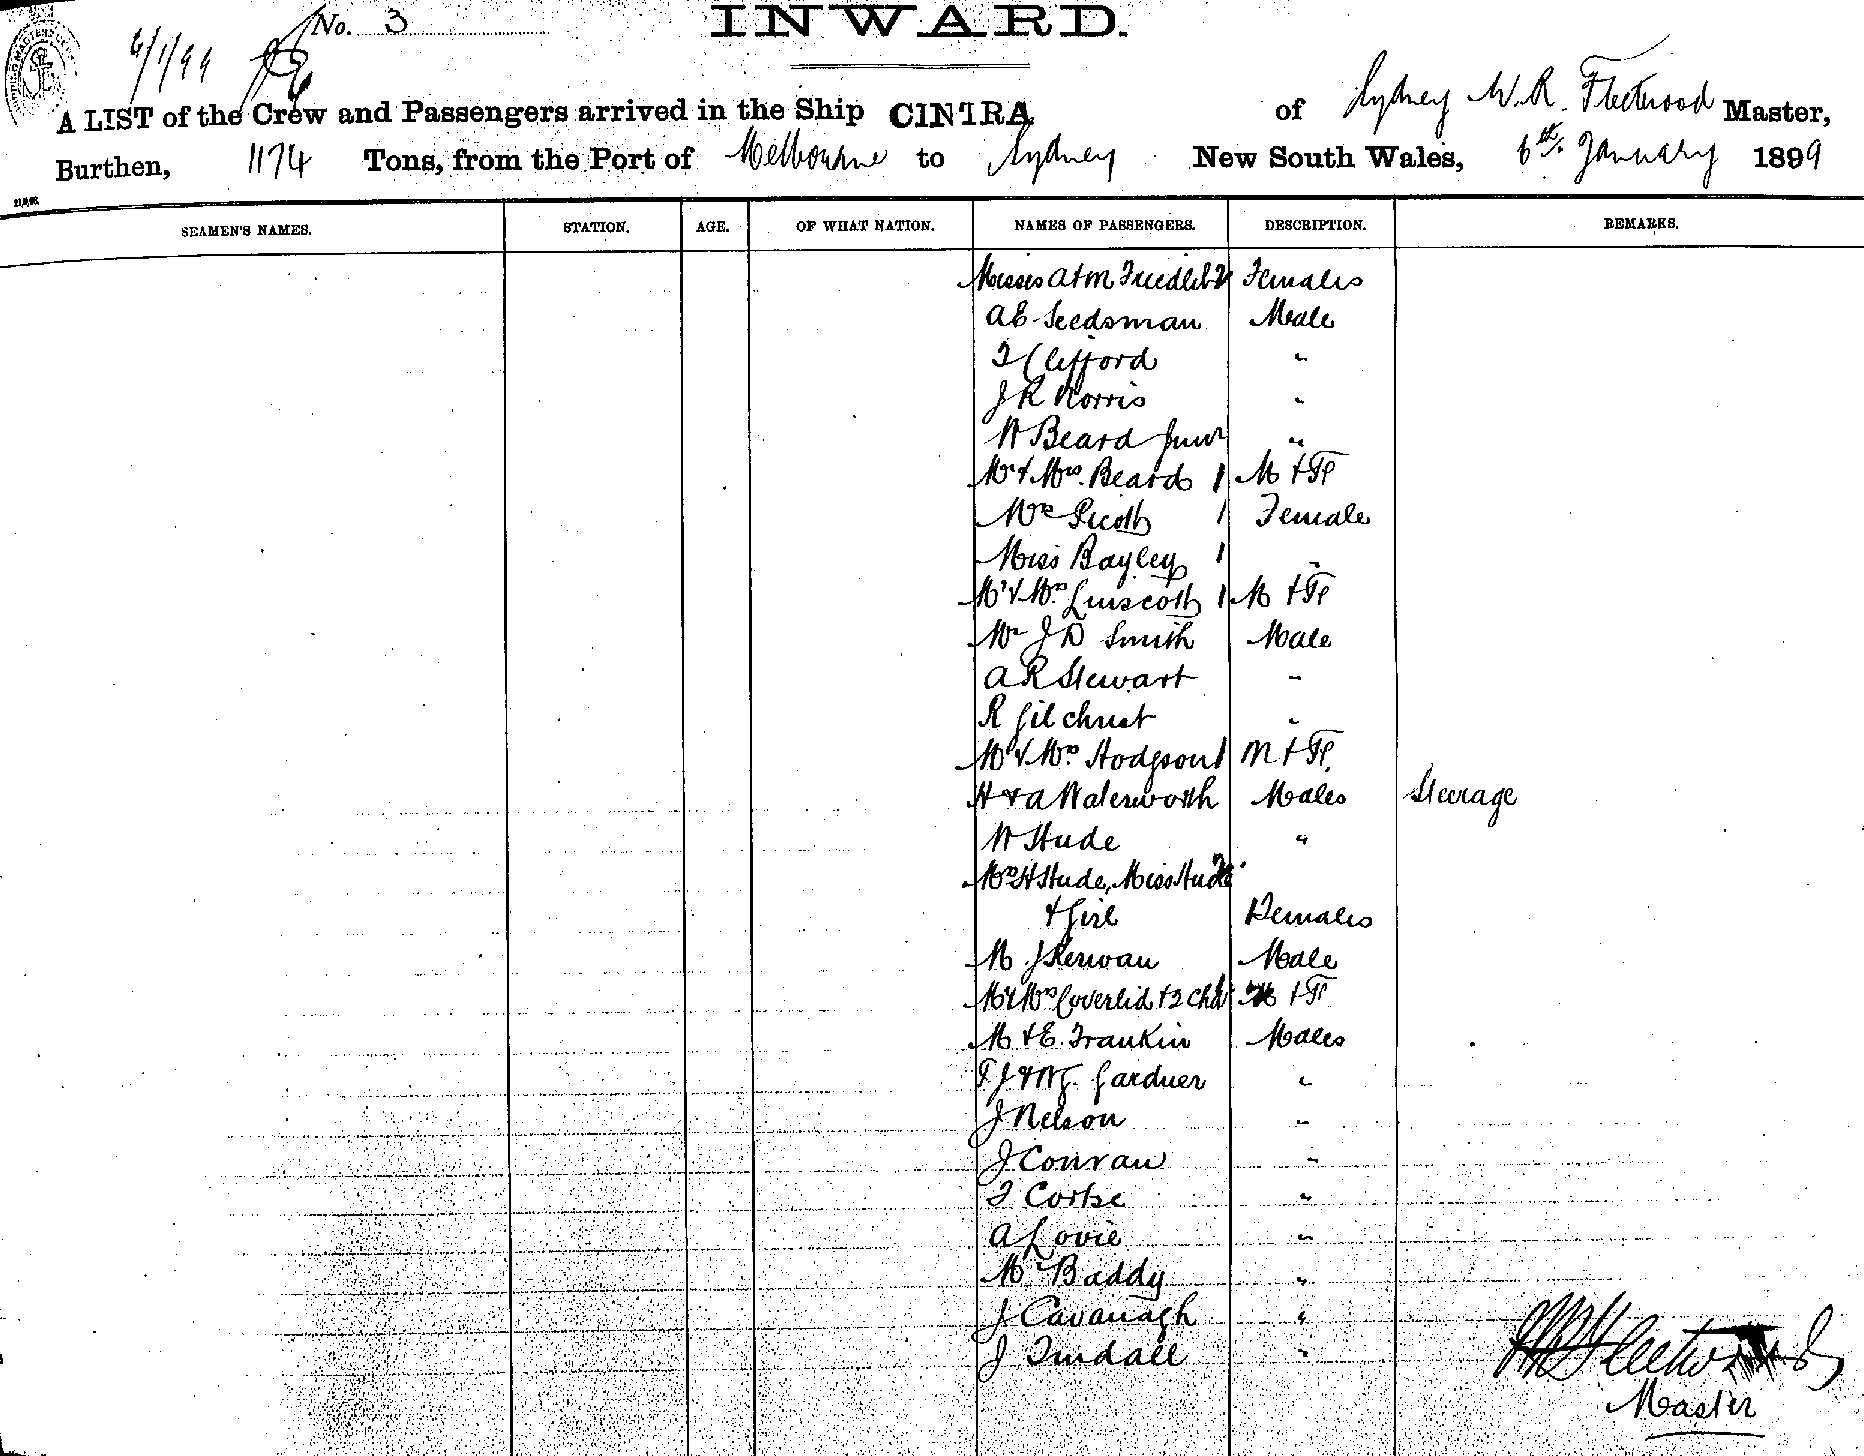 No. 3
INWARD.
6/1/99
A LIST of the Crew and Passengers arrived in the Ship CINTRA of Sydney W. R. Fleetwood Master,
Burthen, 1174 Tons, from the Port of Melbourne to Sydney New South Wales, 6th January 1899
SEAMEN'S NAMES. STATION. AGE. OF WHAT NATION. NAMES OF PASSENGERS. DESCRIPTION. REMARKS.
Misses A & M Females
A E Seedsman Male
Clifford "
J R Norris "
W Beard Junr "
Mr & Mrs. Beard 1 M & F
1 Female
Miss Bayley 1 "
Mr & Mrs. Linscott 1 M & F
Mr J D Smith Male
A R Stewart "
R Gilchrist "
Mr & Mrs. Hodgson 1 M & F
H & A Waterworth Males Steerage
W Hude "
Mrs H Hude, Miss Hude
& Girl Females
M J Kerwan Male
Mr & Mrs Coverlid & 2 Chd M & F
M & E. Frankin Males
Gardner "
J Nelson "
J Conran "
"
A Lovie "
Mr Baddy "
J Cavanagh "
J Tindall "
W R Fleetwood
Master